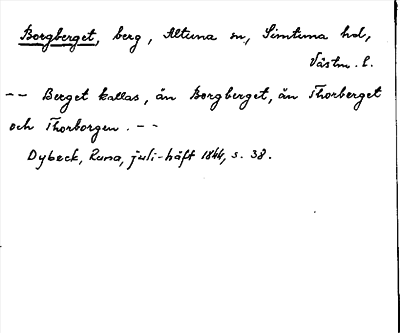 Borgberget, berg, Altuna sn, Simtuna hd,
Västm. l.
-- Berget kallas, än Borgberget, än Thorberget
och Thorborgen. --
Dybeck, Runa, juli-häft 1844, s. 38.